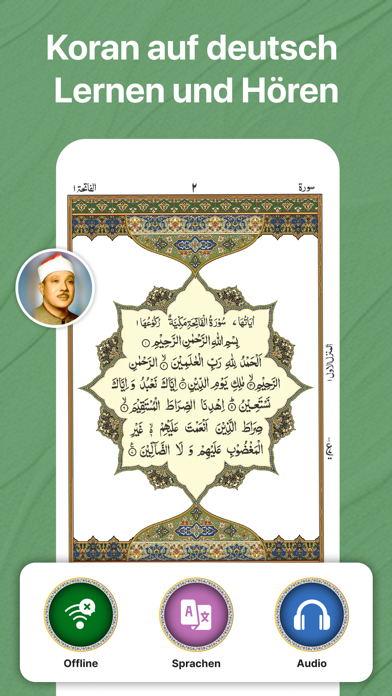 Koran auf deutsch
Lernen und Hören
سورة ٢ الفاتحة ١
اٰیَاتُهَا ٧ سُوْرَةُ الْفَاتِحَةِ مَكِّیَّةٌ رُكُوْعُهَا ١
بِسْمِ اللّٰهِ الرَّحْمٰنِ الرَّحِیْمِ ۝
اَلْحَمْدُ لِلّٰهِ رَبِّ الْعٰلَمِیْنَ ۝ الرَّحْمٰنِ
الرَّحِیْمِ ۝ مٰلِكِ یَوْمِ الدِّیْنِ ۝ اِیَّاكَ نَعْبُدُ وَ اِیَّاكَ
نَسْتَعِیْنُ ۝ اِهْدِنَا الصِّرَاطَ الْمُسْتَقِیْمَ ۝
صِرَاطَ الَّذِیْنَ اَنْعَمْتَ عَلَیْهِمْ ۙ۬ غَیْرِ
الْمَغْضُوْبِ عَلَیْهِمْ وَ لَا الضَّآلِّیْنَ ۝
المنزل الاول ١
Offline
Sprachen
Audio